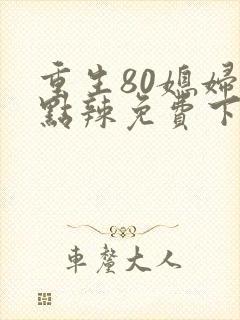 重生80媳婦
點辣免費下
車釐大人